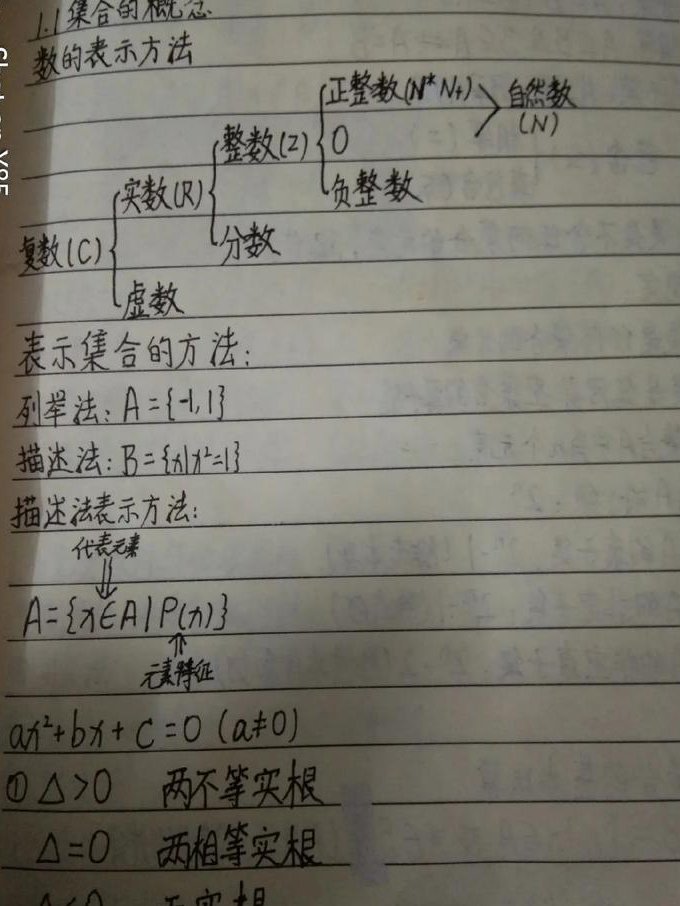 1.1集合的概念
数的表示方法
正整数(N* N+) 自然数
整数(Z) 0 (N)
实数(R) 负整数
复数(C) 分数
虚数
表示集合的方法：
列举法：A={-1,1}
描述法：B={x|x²=1}
描述法表示方法：
代表元素
A={x∈A|P(x)}
元素特征
ax²+bx+c=0 (a≠0)
① Δ>0 两不等实根
Δ=0 两相等实根